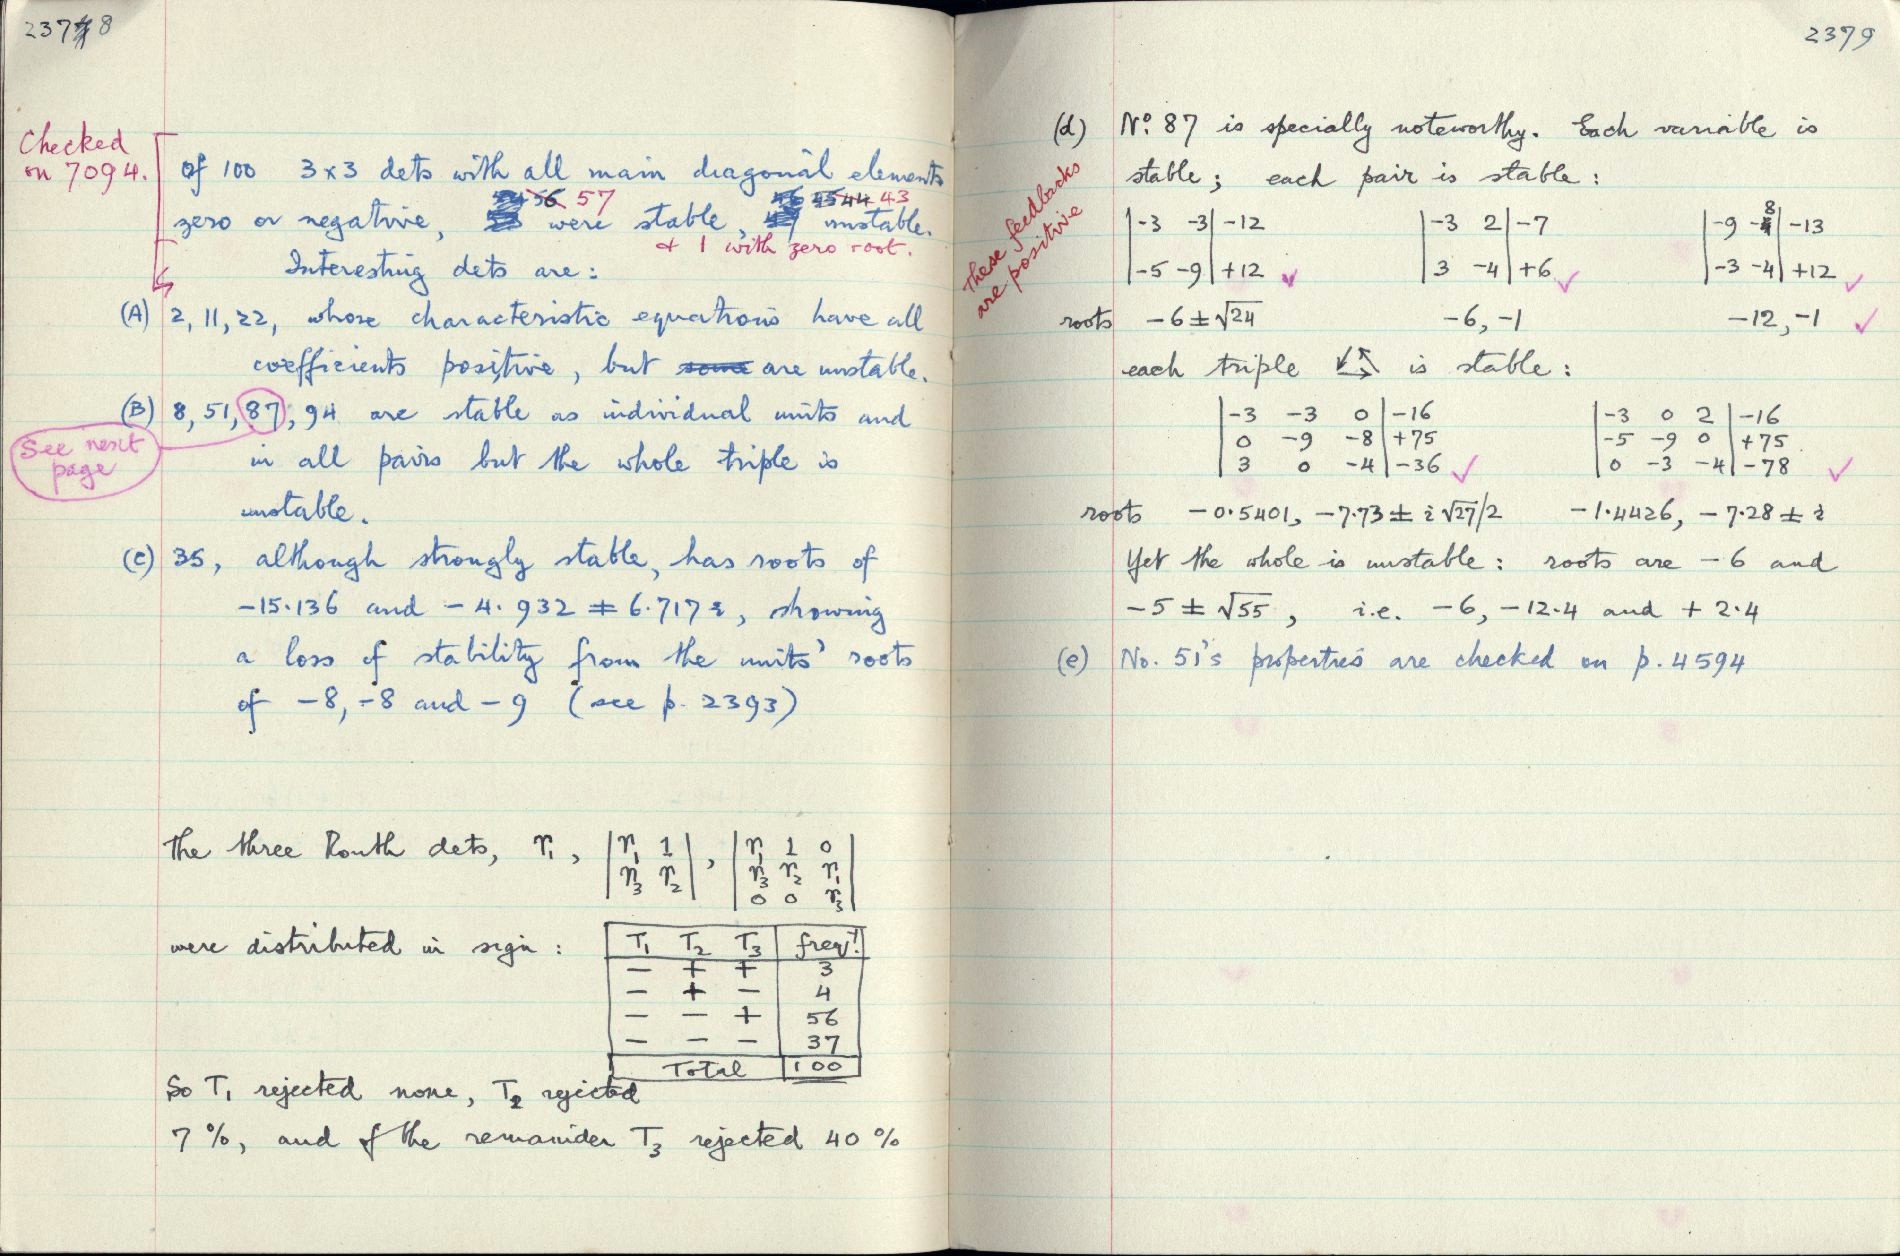 2378
Checked
on 7094.
Of 100 3×3 dets with all main diagonal elements
56 57 4544 43
zero or negative, were stable, unstable.
+ 1 with zero root.
Interesting dets are:
(A) 2, 11, 22, whose characteristic equations have all
coefficients positive, but some are unstable.
(B) 8, 51, 87, 94 are stable as individual units and
See next
page
in all pairs but the whole triple is
unstable.
(C) 35, although strongly stable, has roots of
-15.136 and -4.932 ± 6.717i, showing
a loss of stability from the units' roots
of -8, -8 and -9 (see p. 2393)
The three Routh dets, r₁, |r₁ 1|, |r₁ 1 0|
|r₃ r₂| |r₃ r₂ r₁|
|0 0 r₃|
were distributed in sign:
T₁ T₂ T₃ freqy.
- + + 3
- + - 4
- - + 56
- - - 37
Total 100
So T₁ rejected none, T₂ rejected
7%, and of the remainder T₃ rejected 40%
2379
(d) Nº 87 is specially noteworthy. Each variable is
stable; each pair is stable:
These feedbacks
are positive
|-3 -3| -12 |-3 2| -7 |-9 -8| -13
|-5 -9| +12 |3 -4| +6 |-3 -4| +12
roots -6 ± √24 -6, -1 -12, -1
each triple is stable:
|-3 -3 0| -16 |-3 0 2| -16
|0 -9 -8| +75 |-5 -9 0| +75
|3 0 -4| -36 |0 -3 -4| -78
roots -0.5401, -7.73 ± i√27/2 -1.4426, -7.28 ± i
Yet the whole is unstable: roots are -6 and
-5 ± √55, i.e. -6, -12.4 and +2.4
(e) No. 51's properties are checked on p. 4594